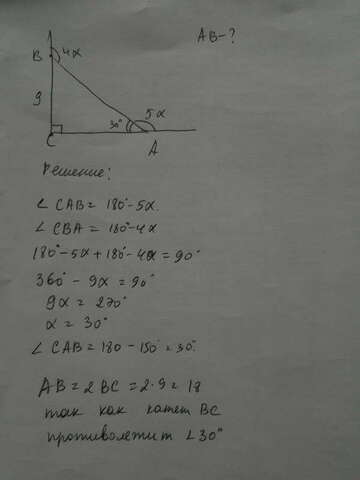 AB-?
B 4x
9
30° 5x
C A
Решение:
∠ CAB = 180°-5x.
∠ CBA = 180°-4x
180°-5x+180°-4x=90°
360° - 9x = 90°
9x = 270°
x = 30°
∠ CAB = 180 - 150° = 30°.
AB = 2 BC = 2·9 = 18
так как катет BC
противолежит ∠30°